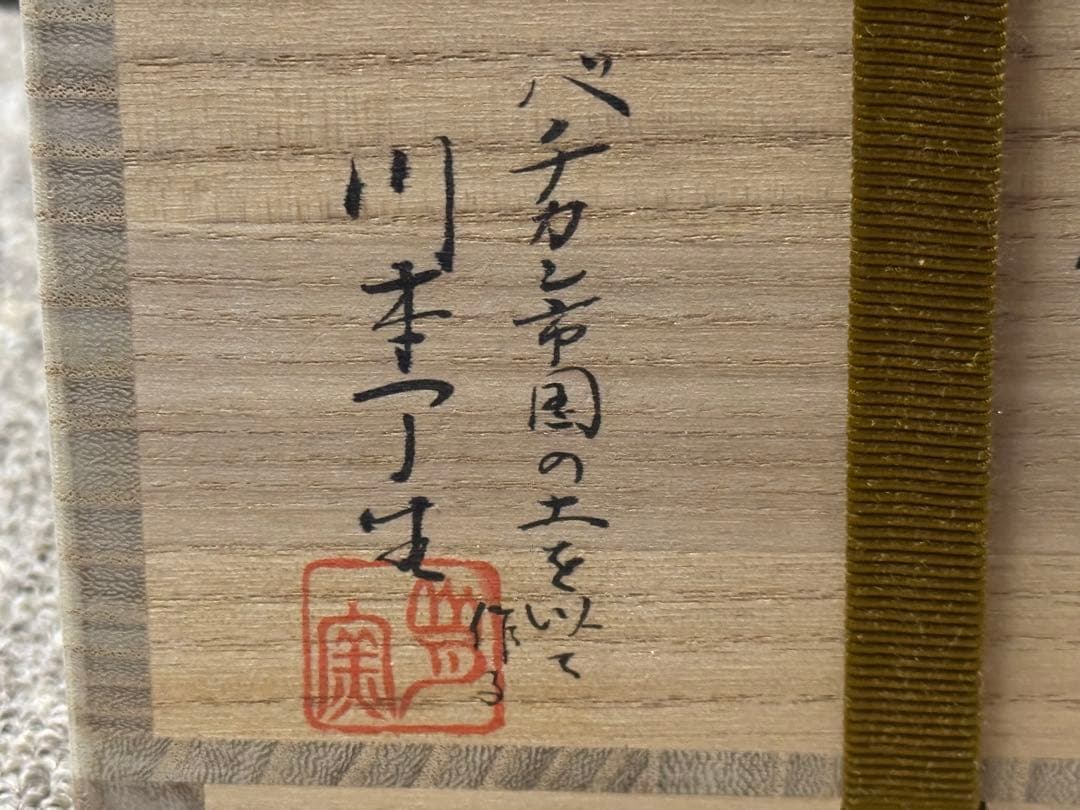 バチカン市国の土を以て
作る
川本一丁生